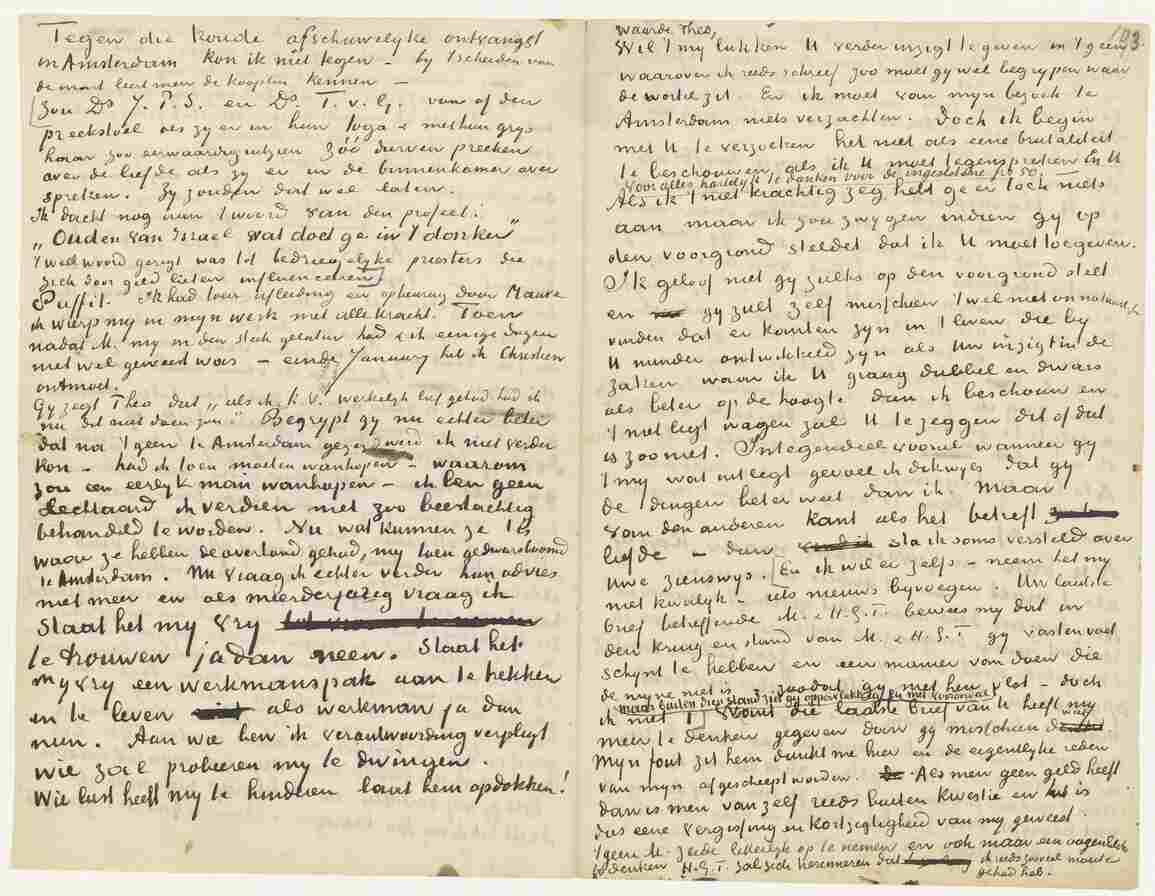 Tegen die koude afschuwelyke ontvangst
in Amsterdam kon ik niet tegen – by 't scheiden van
de markt leert men de kooplui kennen –
Zou Ds J. P. S. en Ds. T. v. G. van of den
preekstoel als zy er in hun toga & met hun grys
haar zoo eerwaardig uitzien zóó durven preeken
over de liefde als zy er in de binnenkamer over
spreken. Zy zouden dat wel laten.
Ik dacht nog aan 't woord van den profeet:
„Ouden van Israel wat doet ge in 't donker"
't welk woord gezegd was tot bedriegelyke priesters die
zich door geld lieten influenceeren
Puffit. Ik had toen afleiding en opbeuring door Mauve
ik wierp my in myn werk met alle kracht. Toen
nadat M. my in den steek gelaten had & ik eenige dagen
niet wel geweest was – einde January heb ik Christien
ontmoet.
Gy zegt Theo dat „als ik K. V. werkelyk lief gehad had ik
nu dit niet doen zou". Begrypt gy nu echter beter
dat na 't geen te Amsterdam gezegd werd ik niet verder
kon – had ik toen moeten wanhopen – waarom
zou een eerlyk man wanhopen – ik ben geen
slechtaard ik verdien niet zoo beestachtig
behandeld te worden. Nu wat kunnen ze 't is
waar ze hebben de overhand gehad, my toen gedwarsboomd
te Amsterdam. Nu vraag ik echter verder hun advies
niet meer en als meerderjarig vraag ik
staat het my vry
te trouwen ja dan neen. Staat het
my vry een werkmanspak aan te trekken
en te leven als werkman ja dan
neen. Aan wie ben ik verantwoording verpligt
wie zal probeeren my te dwingen.
Wie lust heeft my te hinderen laat hem opdokken!
193
Waarde Theo,
Wil 't my lukken U verder inzigt te geven in 't geen
waarover ik reeds schreef zoo moet gy wel begrypen waar
de wortel zit. En ik moet van myn bezoek te
Amsterdam niets verzachten. Doch ik begin
met U te verzoeken het niet als eene brutaliteit
te beschouwen als ik U moet tegenspreken En U
voor alles hartelyk te danken voor de ingeslotene fr 50.
Als ik 't niet krachtig zeg hebt ge er toch niets
aan maar ik zou zwygen indien gy op
den voorgrond steldet dat ik U moet toegeven.
Ik geloof niet gy zulks op den voorgrond stelt
en gy zult zelf misschien 't wel niet onnatuurlyk
vinden dat er kanten zyn in 't leven die by
U minder ontwikkeld zyn als Uw inzigt in de
zaken waar ik U graag dubbel en dwars
als beter op de hoogte dan ik beschouw en
't niet ligt wagen zal U te zeggen dit of dat
is zoo niet. Integendeel vooral wanneer gy
't my wat uitlegt gevoel ik dikwyls dat gy
de dingen beter weet dan ik. Maar
van den anderen kant als het betreft
liefde – dan sta ik soms versteld over
Uwe zienswys. En ik wil er zelfs – neem het my
niet kwalyk – iets nieuws byvoegen. Uw laatste
brief betreffende M. & H. G. T. bewees my dat in
den kring en stand van M. & H. G. T gy vasten voet
schynt te hebben en een manier van doen die
de myne niet is zoodat gy met hen vlot – doch
maar buiten dien stand zit gy oppervlakkig en met vooroordeel
ik niet want die laatste brief van U heeft my
meer te denken gegeven dan gy misschien
Myn fout zit hem dunkt me hier en de eigentlyke reden
van myn afgescheept worden. Als men geen geld heeft
dan is men van zelf reeds buiten kwestie en is
dus eene vergissing en kortzigtigheid van my geweest
't geen M. zeide letterlyk op te nemen en ook maar een oogenblik
te denken H. G. T. zal zich herinneren dat ik reeds zooveel moeite
gehad heb.